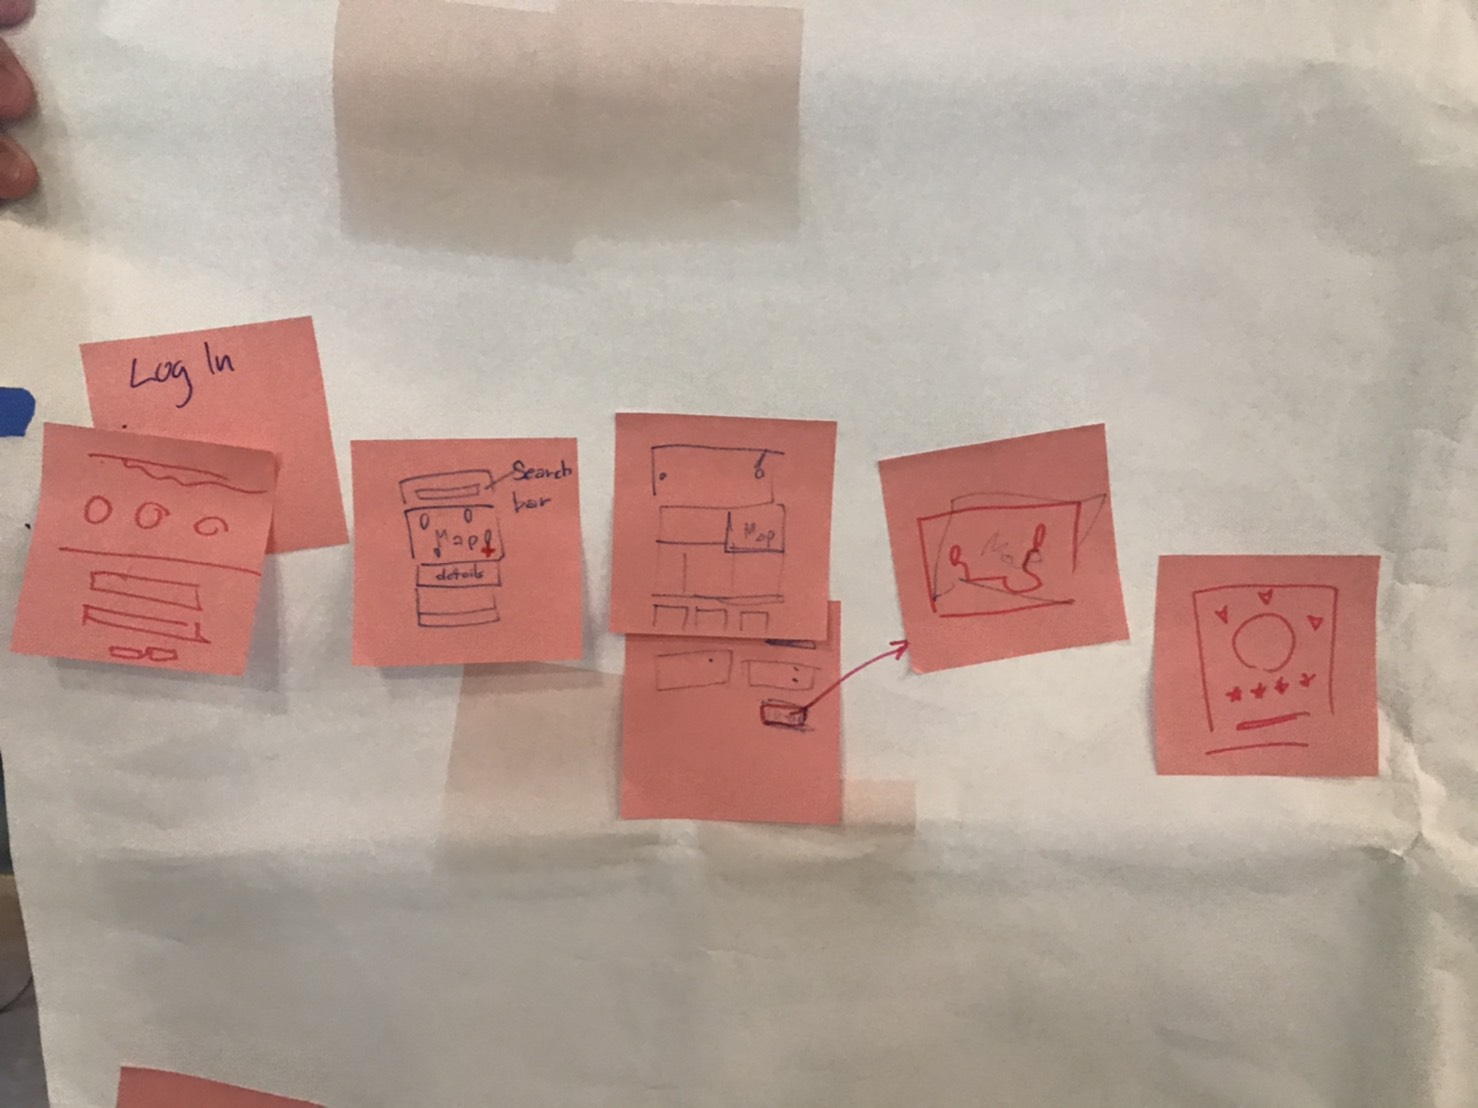 Log In
Search
bar
Map
details
Map